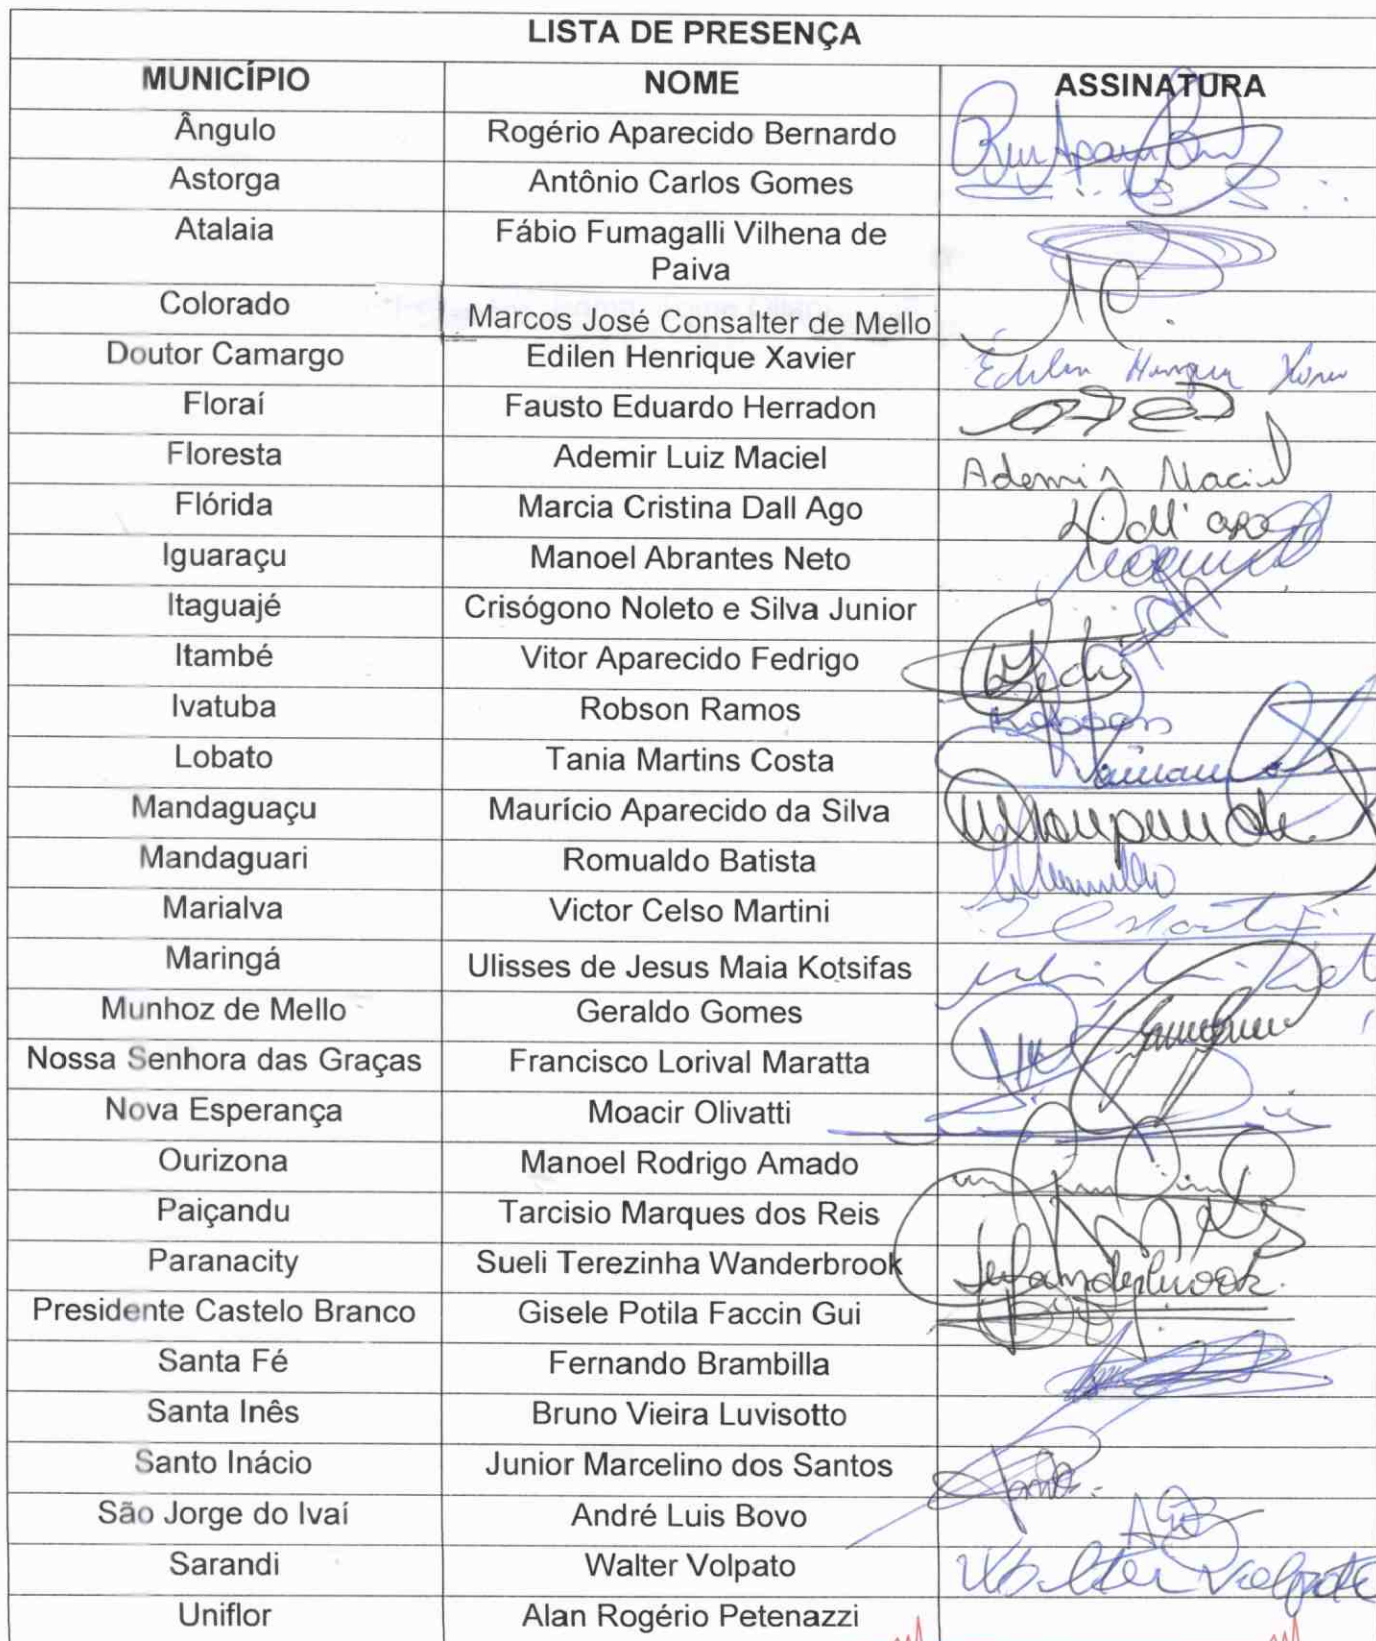 LISTA DE PRESENÇA
MUNICÍPIO NOME ASSINATURA
Ângulo Rogério Aparecido Bernardo
Astorga Antônio Carlos Gomes
Atalaia Fábio Fumagalli Vilhena de
Paiva
Colorado Marcos José Consalter de Mello
Doutor Camargo Edilen Henrique Xavier Edilen Henrique Xavier
Floraí Fausto Eduardo Herradon
Floresta Ademir Luiz Maciel Ademir Maciel
Flórida Marcia Cristina Dall Ago Dall'ago
Iguaraçu Manoel Abrantes Neto
Itaguajé Crisógono Noleto e Silva Junior
Itambé Vitor Aparecido Fedrigo
Ivatuba Robson Ramos Robson
Lobato Tania Martins Costa
Mandaguaçu Maurício Aparecido da Silva
Mandaguari Romualdo Batista
Marialva Victor Celso Martini Martini
Maringá Ulisses de Jesus Maia Kotsifas
Munhoz de Mello Geraldo Gomes
Nossa Senhora das Graças Francisco Lorival Maratta
Nova Esperança Moacir Olivatti
Ourizona Manoel Rodrigo Amado
Paiçandu Tarcisio Marques dos Reis
Paranacity Sueli Terezinha Wanderbrook
Presidente Castelo Branco Gisele Potila Faccin Gui
Santa Fé Fernando Brambilla
Santa Inês Bruno Vieira Luvisotto
Santo Inácio Junior Marcelino dos Santos
São Jorge do Ivaí André Luis Bovo
Sarandi Walter Volpato Walter Volpato
Uniflor Alan Rogério Petenazzi